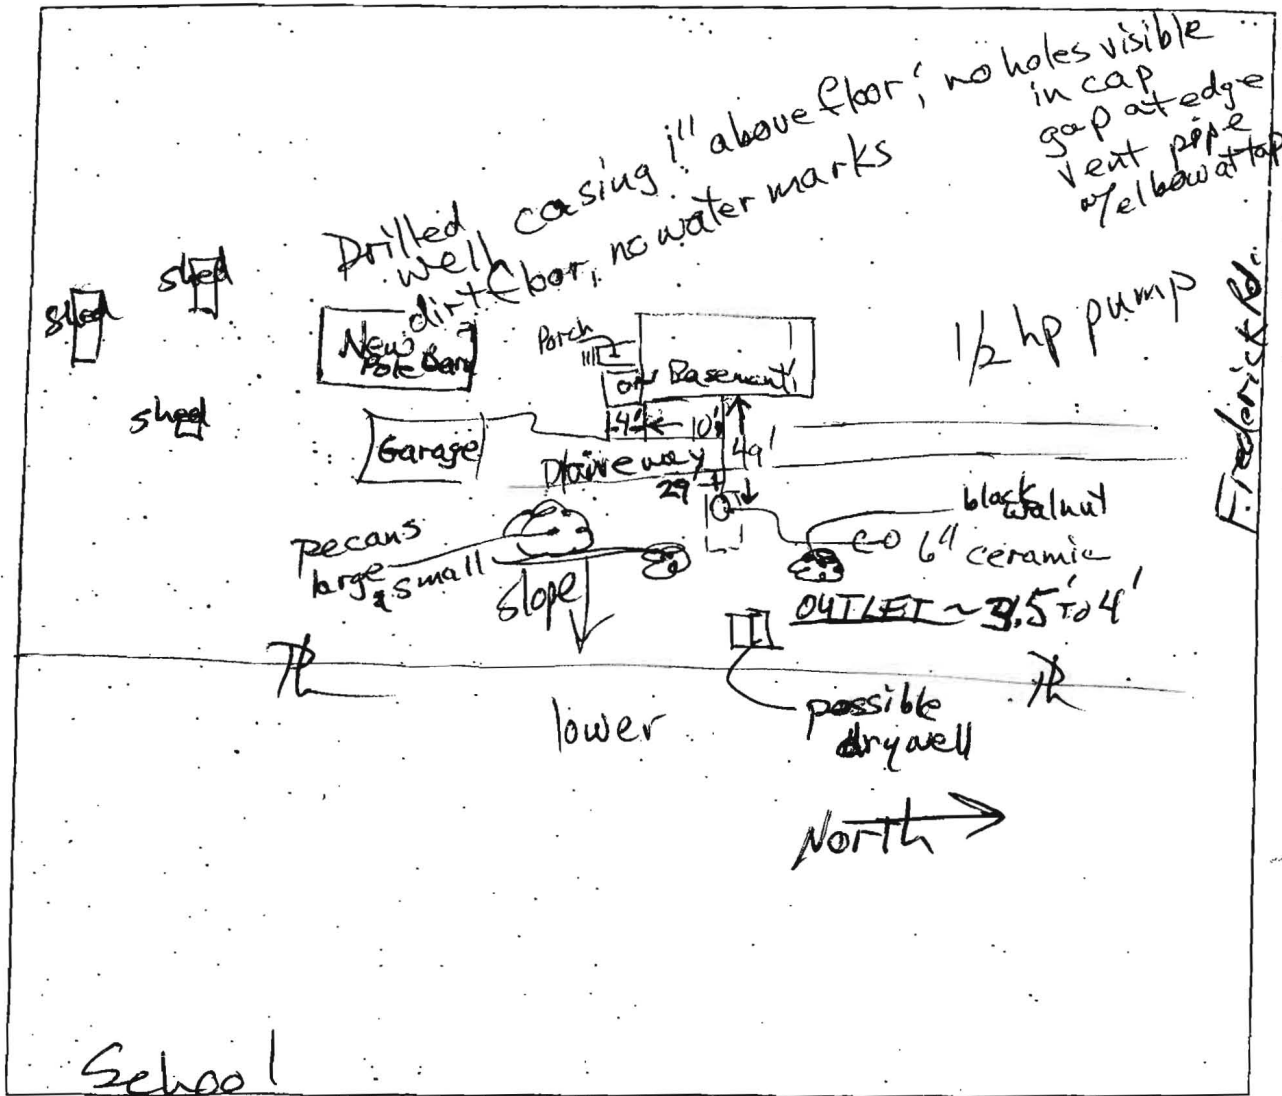 Drilled well casing 1" above floor; no holes visible
in cap
gap at edge
vent pipe
w/elbow at top
dirt floor, no water marks
shed
shed
shed
New
Pole Barn
Porch
Basement
1/2 hp pump
Frederick Rd.
Garage
4'
10'
49'
Driveway
29'
pecans
large & small
slope
black
walnut
CO 6" ceramic
OUTLET ~ 3.5' TO 4'
PL
PL
lower
possible
drywell
North
School